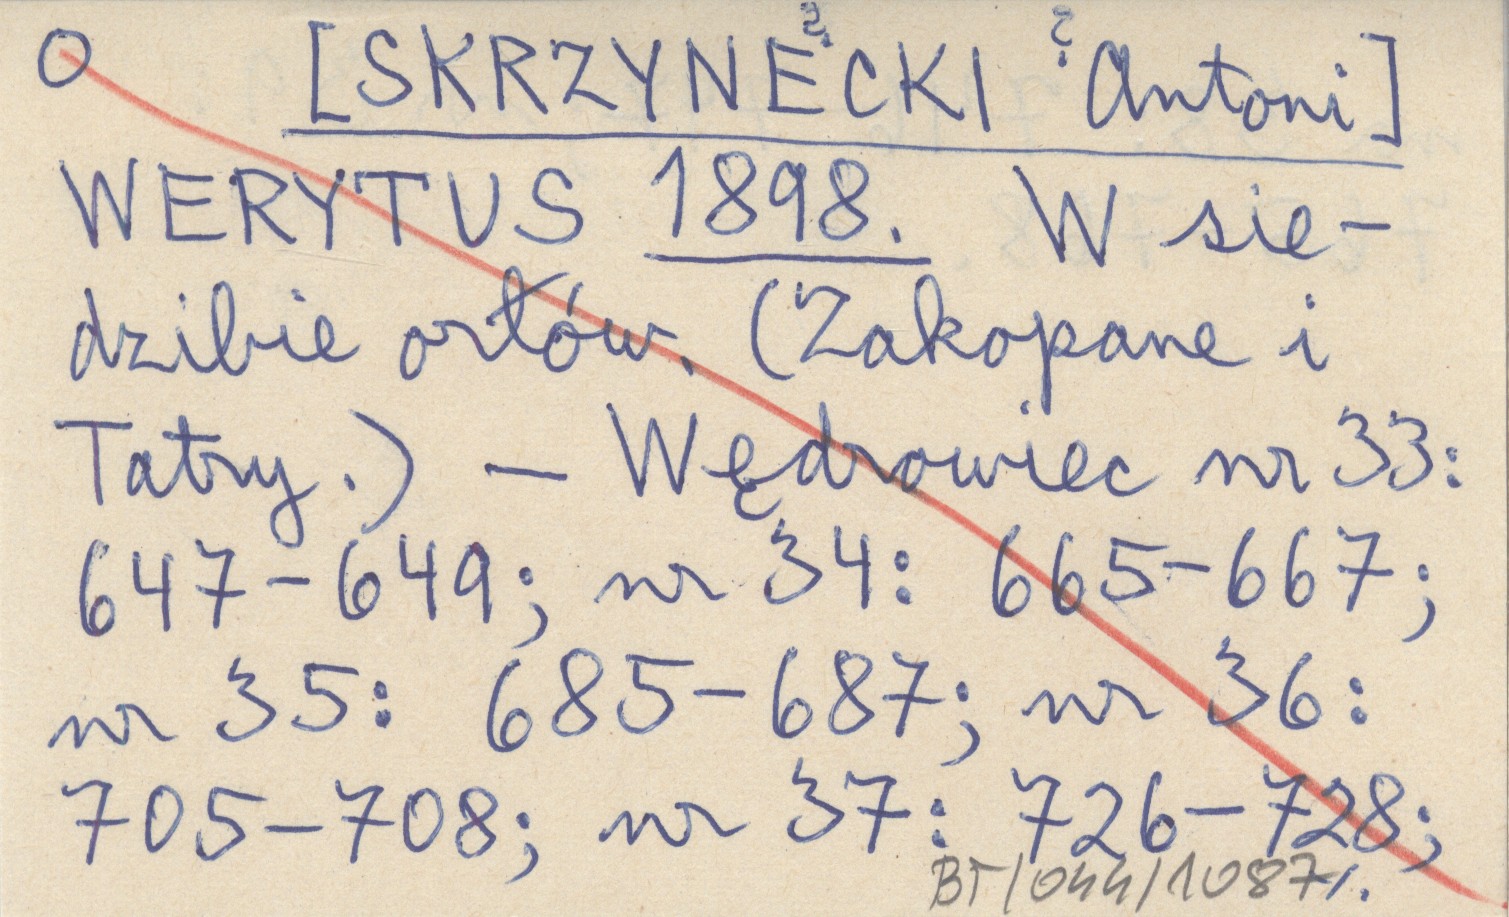 O [SKRZYNECKI ? ? Antoni]
WERYTUS 1898. W sie-
dzibie orłów. (Zakopane i
Tatry.) — Wędrowiec nr 33:
647-649; nr 34: 665-667;
nr 35: 685-687; nr 36:
705-708; nr 37: 726-728;
BT/044/1087/.